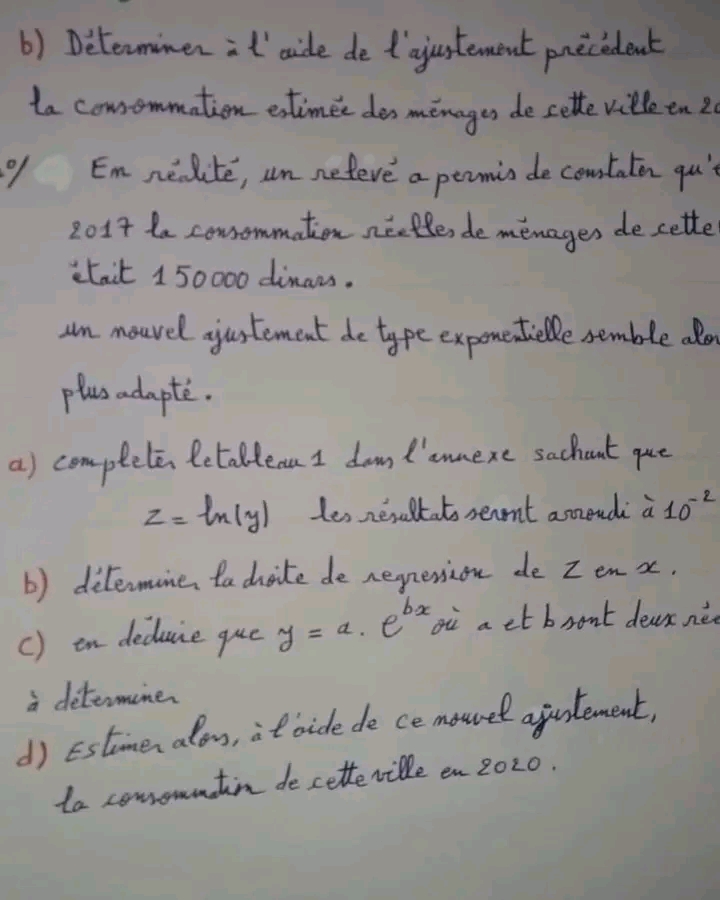 b) Déterminer à l'aide de l'ajustement précédent
la consommation estimée des ménages de cette ville en 20
°/ En réalité, un relevé a permis de constater qu'
2017 la consommation réelles de ménages de cette
était 150000 dinars.
un nouvel ajustement de type exponentielle semble alo
plus adapté.
a) completer le tableau 1 dans l'annexe sachant que
z = ln(y) les résultats seront arrondi à 10⁻²
b) déterminer la droite de regression de Z en x.
c) en déduire que y = a. e^{bx} où a et b sont deux rée
à déterminer
d) Estimer alors, à l'aide de ce nouvel ajustement,
la consommation de cette ville en 2020.